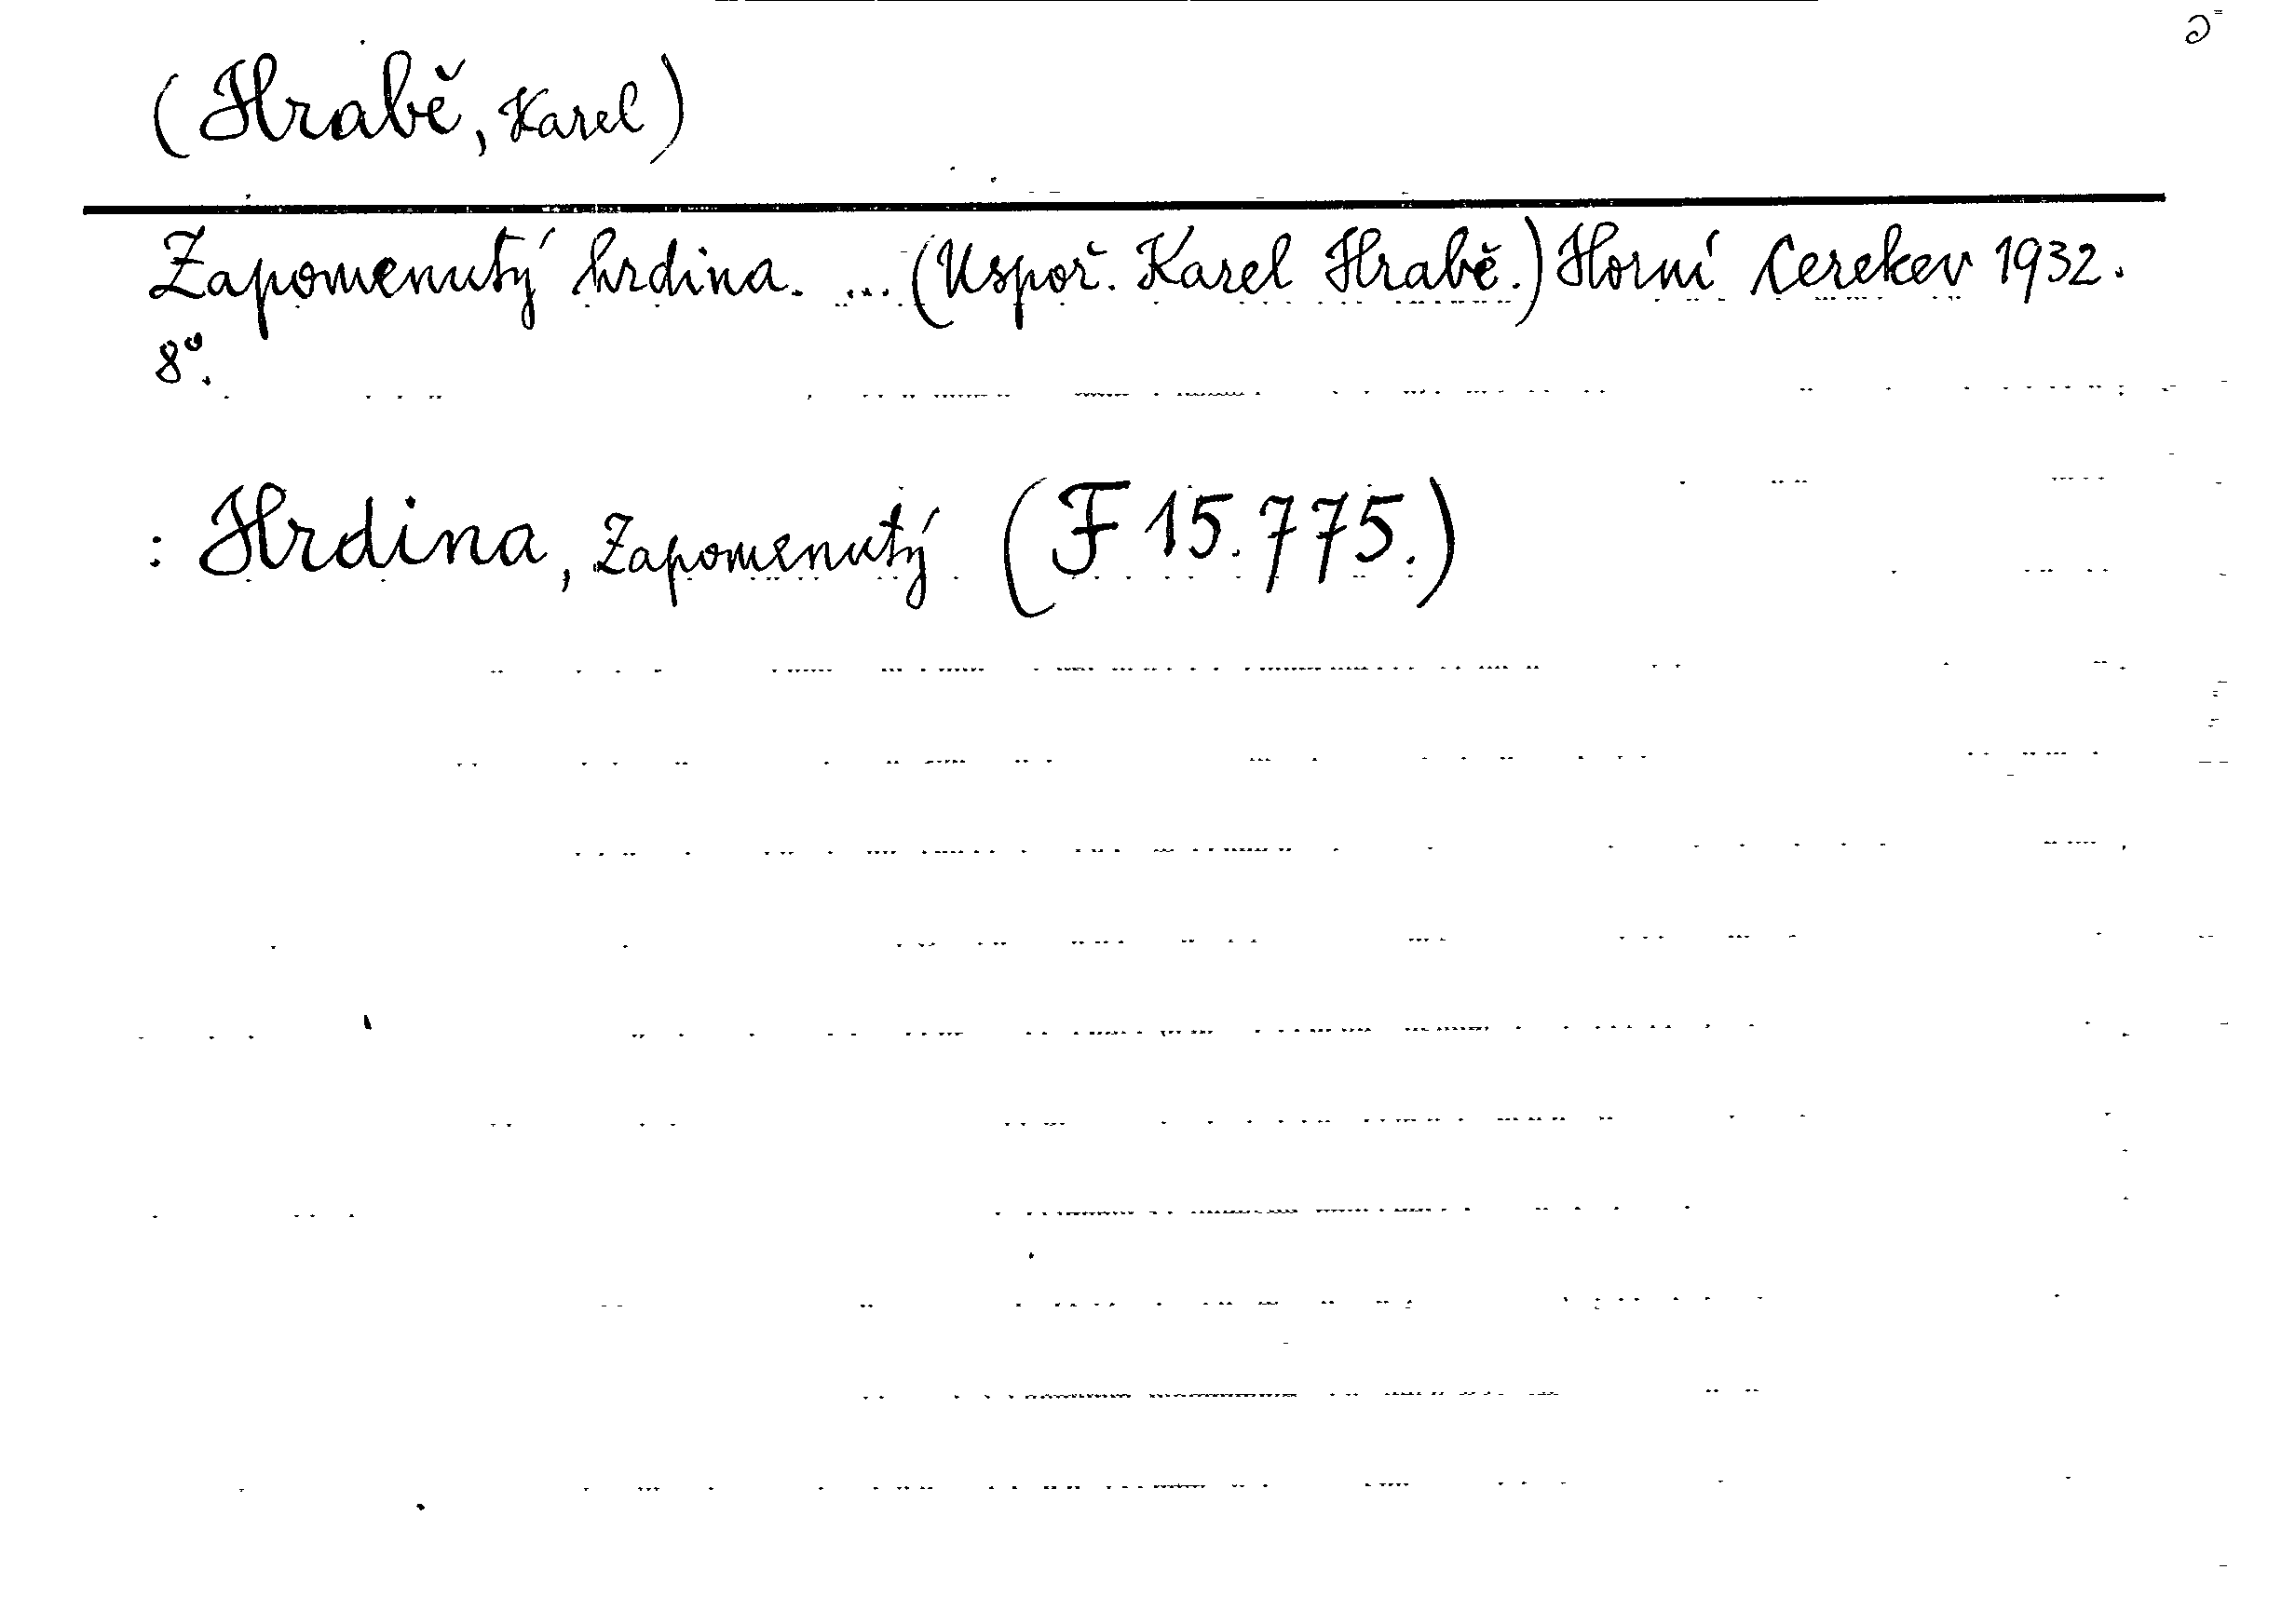 (Hrabě, Karel)
Zapomenutý hrdina. ... (Uspoř. Karel Hrabě.) Horní Cerekev 1932.
8°.
: Hrdina, Zapomenutý (F 15.775.)